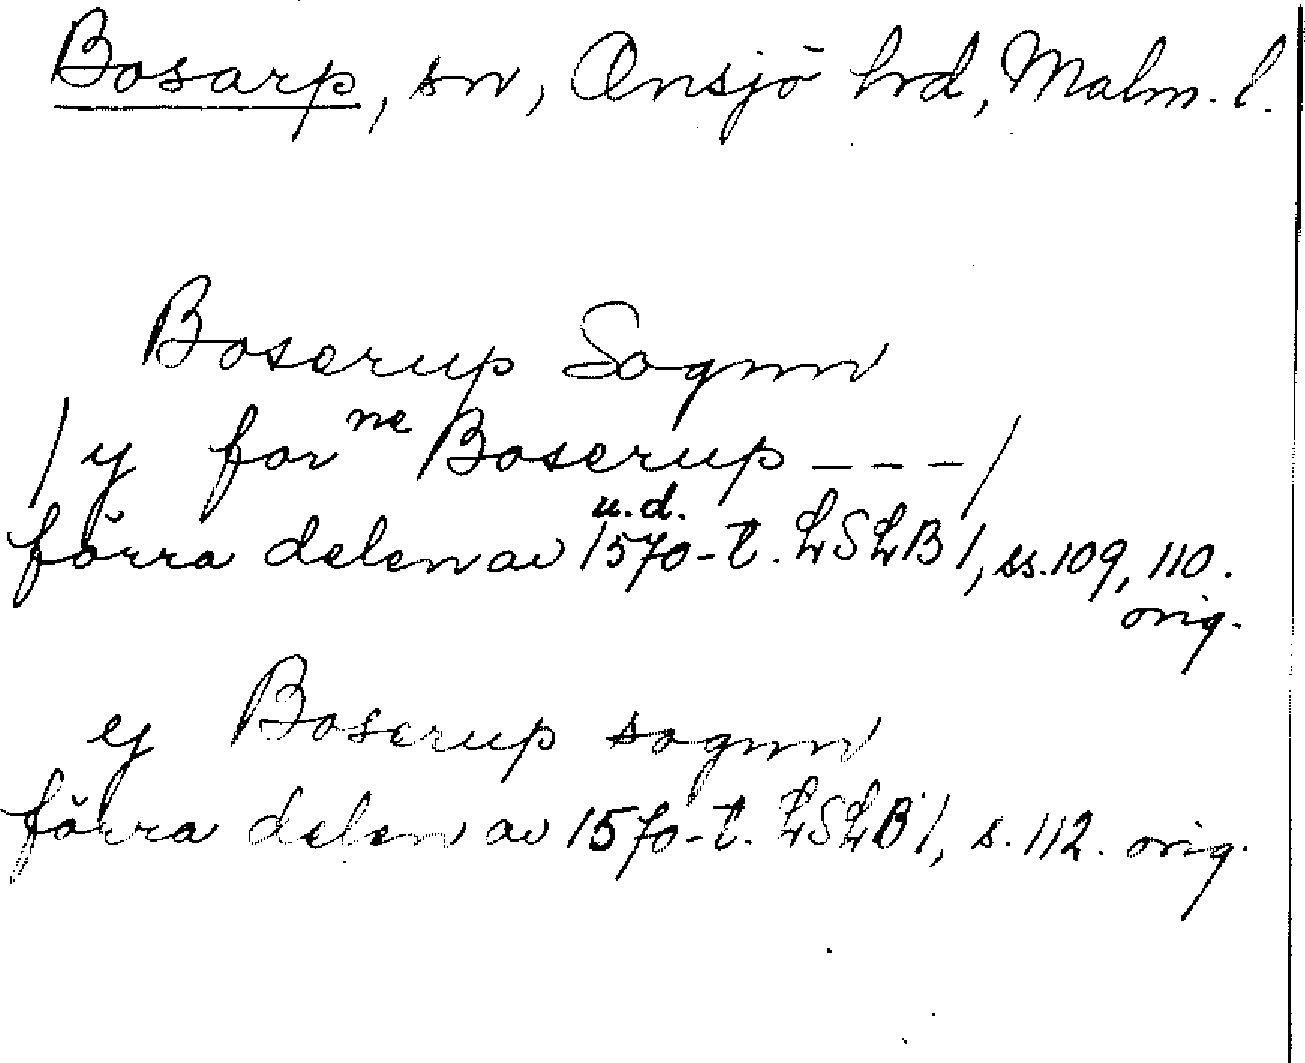 Bosarp, sn, Onsjö hrd, Malm. l.
Boserup Sognn
/ y for ne Boserup - - - /
u.d.
förra delen av 1570-t. LSLB 1, ss. 109, 110.
orig.
ej Boserup sognn
förra delen av 1570-t. LSLB 1, s. 112. orig.